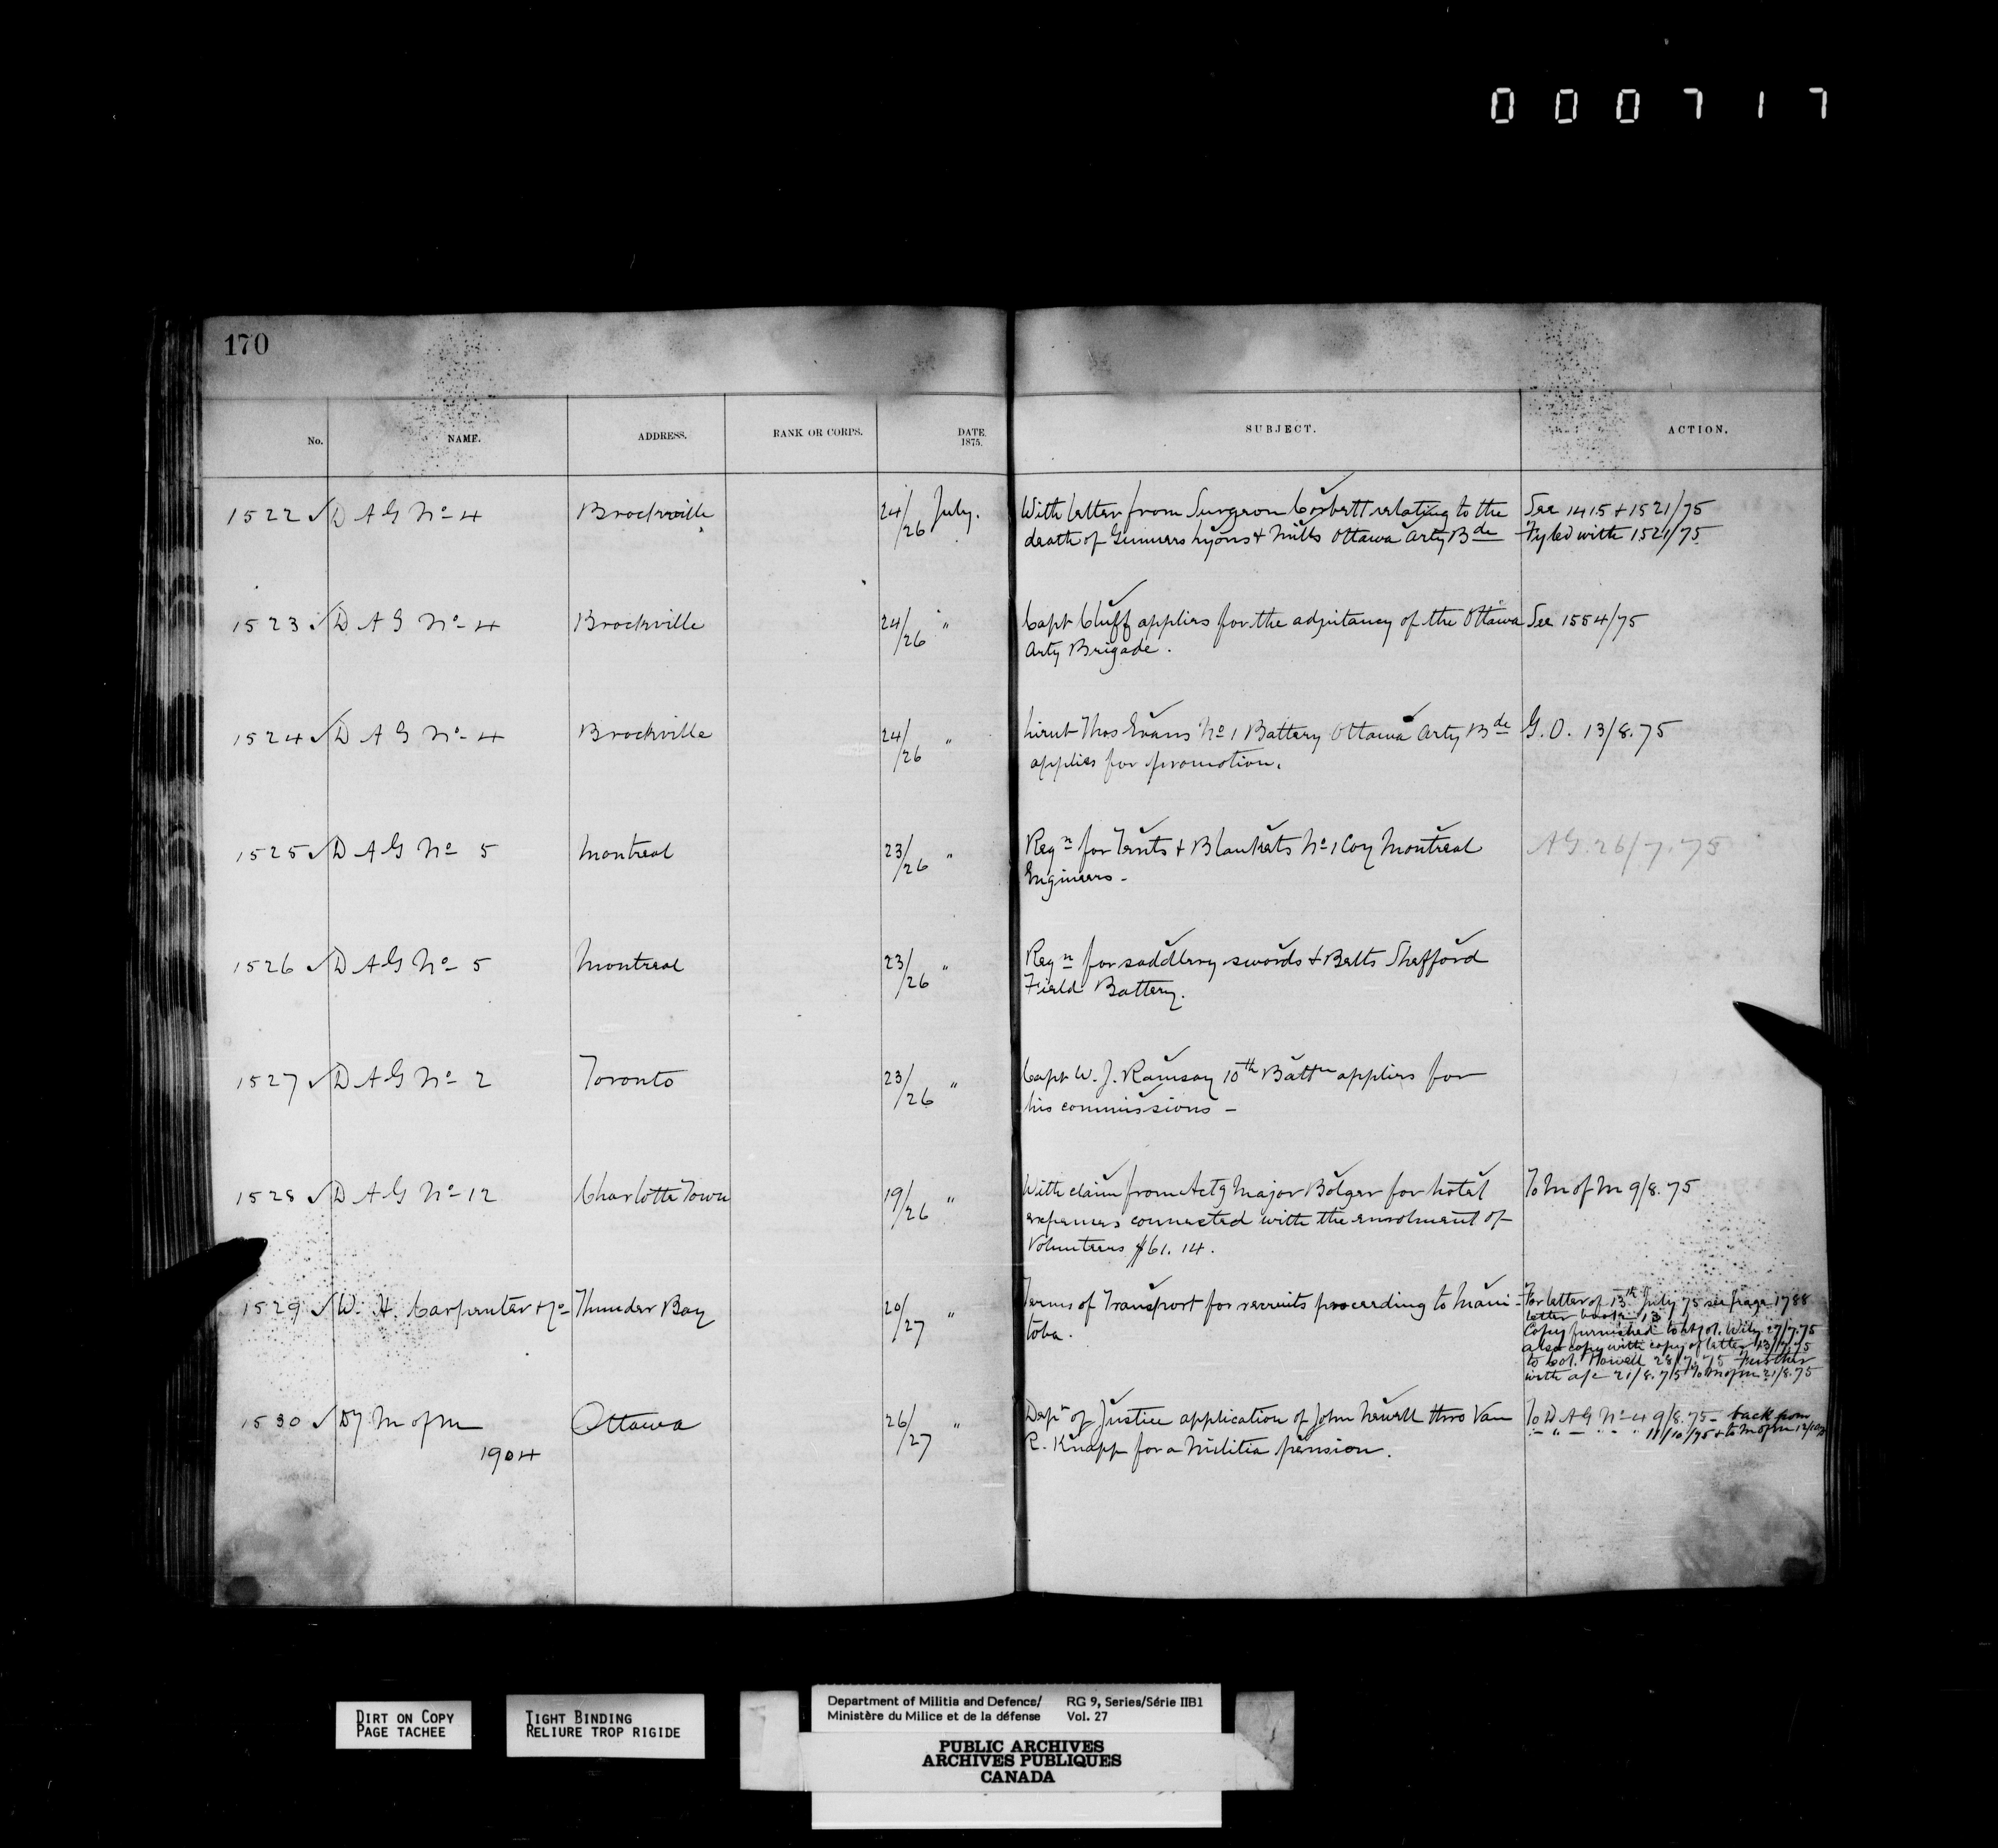 000717
170
No. NAME. ADDRESS. RANK OR CORPS. DATE. 1875. SUBJECT. ACTION.
1522 ✓ D A G No 4 Brockville 24/26 July. With letter from Surgeon Corbett relating to the See 1415 + 1521/75
death of Gunners Lyons + Mills Ottawa Arty Bde Fyled with 1521/75
1523 ✓ D A G No 4 Brockville 24/26 " Capt Cluff applies for the adjutancy of the Ottawa See 1554/75
Arty Brigade.
1524 ✓ D A G No 4 Brockville 24/26 " Lieut Thos Evans No 1 Battery Ottawa Arty Bde G.O. 13/8.75
applies for promotion.
1525 ✓ D A G No 5 Montreal 23/26 " Reqn for Tents + Blankets No 1 Coy Montreal AG. 26/7.75
Engineers -
1526 ✓ D A G No 5 Montreal 23/26 " Reqn for saddlery swords + Belts Shefford
Field Battery.
1527 ✓ D A G No 2 Toronto 23/26 " Capt W. J. Ramsay 10th Battn applies for
his commissions -
1528 ✓ D A G No 12 Charlotte Town 19/26 " With claim from Actg Major Bolger for hotel To M of M 9/8.75
expenses connected with the enrolment of
Volunteers $61.14.
1529 ✓ W. H. Carpenter + Co Thunder Bay 20/27 " Terms of Transport for recruits proceeding to Mani- For letter of 13th July 75 see page 1788
toba. letter book 13
Copy furnished to Lt Col. Wily 27/7.75
also copy with copy of letter 13/7.75
to Col. Powell 28/7.75 further
with a/c 21/8.75 To M of M 21/8.75
1530 ✓ Dy M of M Ottawa 26/27 " Dept of Justice application of John Newell thro Van To D A G No 4 9/8.75 - back from
1904 R. Knapp for a Militia pension. " " 11/10/75 + to M of M
DIRT ON COPY
PAGE TACHEE
TIGHT BINDING
RELIURE TROP RIGIDE
Department of Militia and Defence/ RG 9, Series/Série IIB1
Ministère du Milice et de la défense Vol. 27
PUBLIC ARCHIVES
ARCHIVES PUBLIQUES
CANADA